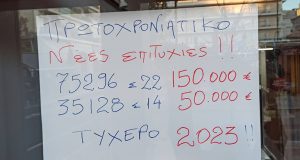 ΠΡΩΤΟΧΡΟΝΙΑΤΙΚΟ
ΝΕΕς ΕΠΙΤΥΧΙΕς !!
75296 Σ 22 150.000 €
35128 Σ 14 50.000 €
ΤΥΧΕΡΟ 2023 !!